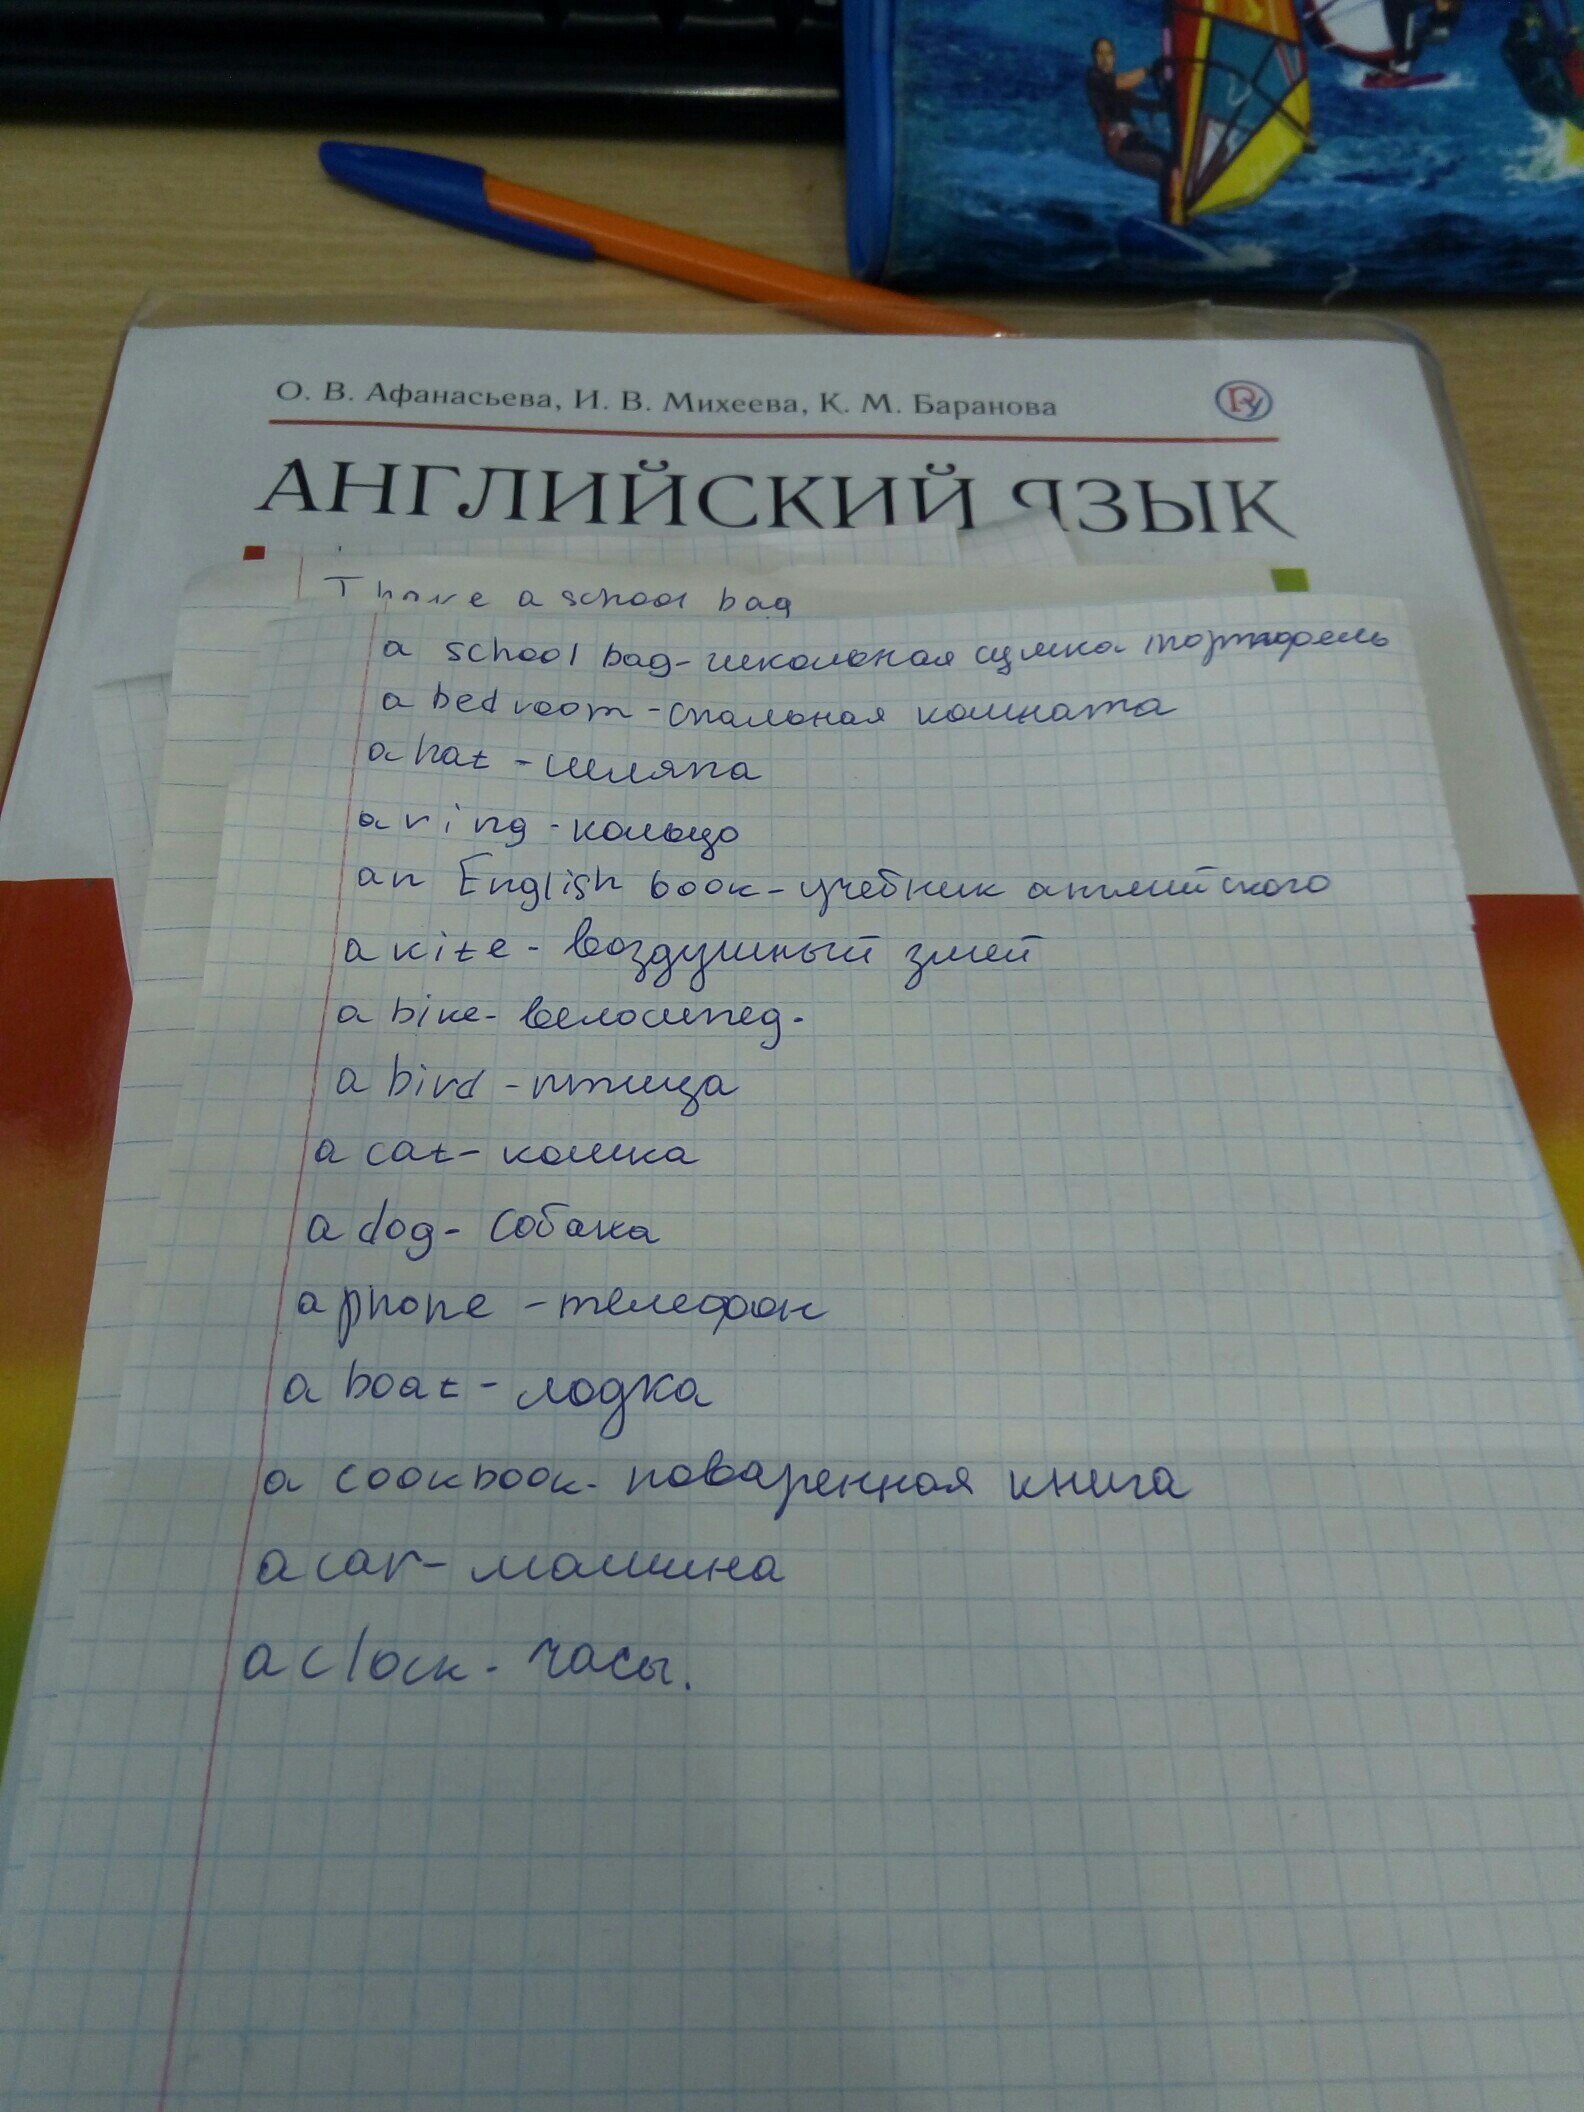 О. В. Афанасьева, И. В. Михеева, К. М. Баранова
АНГЛИЙСКИЙ ЯЗЫК
I have a school bag
a school bag - школьная сумка портфель
a bedroom - спальная комната
a hat - шляпа
a ring - кольцо
an English book - учебник английского
a kite - воздушный змей
a bike - велосипед.
a bird - птица
a cat - кошка
a dog - собака
a phone - телефон
a boat - лодка
a cookbook - поваренная книга
a car - машина
a clock - часы.